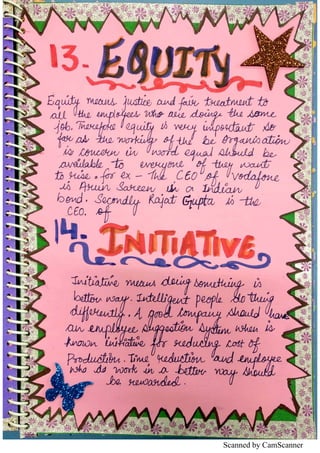 13. EQUITY
Equity means justice and fair treatment to
all the employees who are doing the same
job. Therefore equity is very important so
for as the working of the be organisation
is concern in word equal should be
available to everyone if they want
to rise. for ex - The CEO of Vodafone
is Arun Sareen is a Indian
bond. Secondly Rajat Gupta is the
CEO. of
14. INITIATIVE
Initiative means doing something is
better way. Intelligent people do thing
differently. A good company should have
an employee suggestion system when is
known initiative for reducing cost of
Production. Time reduction and employee
who do work in a better way should
be rewarded.
Scanned by CamScanner